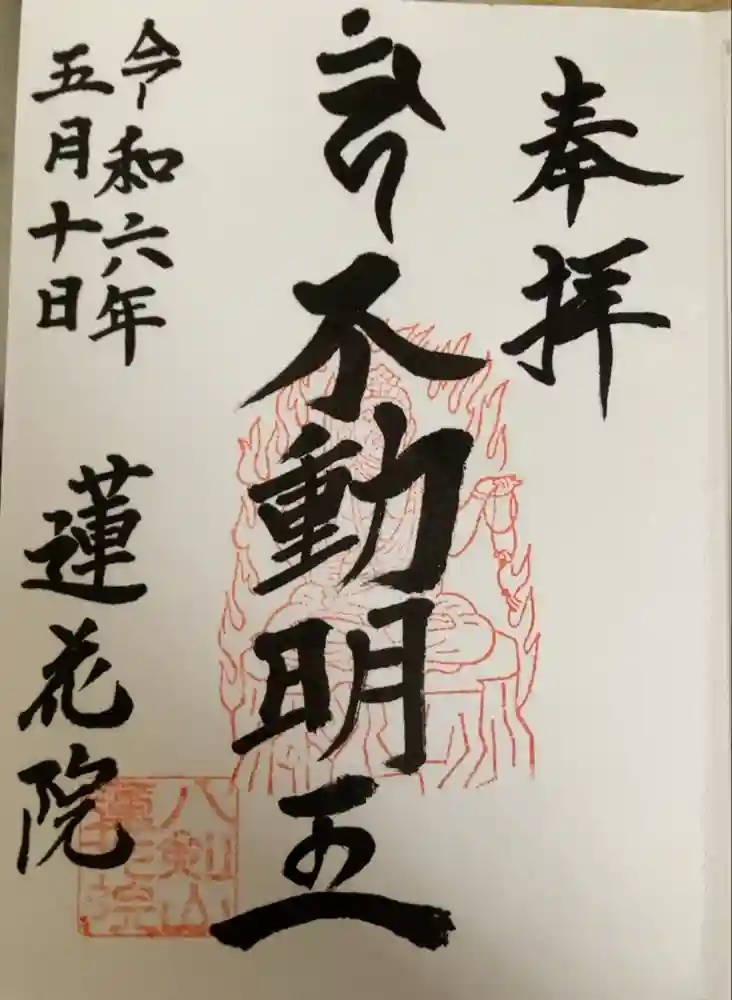 奉拝
不動明王
令和六年
五月十日
蓮花院
八剣山
蓮花院